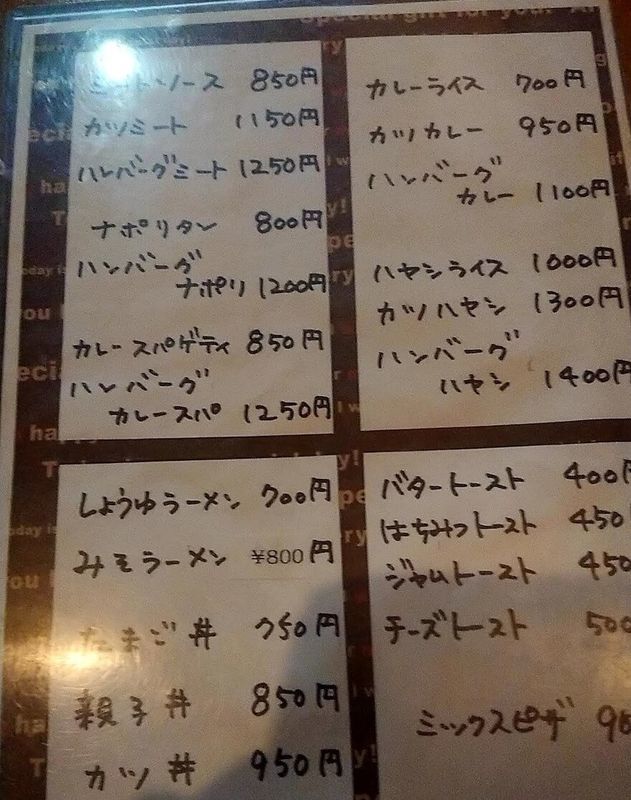 ミートソース 850円
カツミート 1150円
ハンバーグミート 1250円
ナポリタン 800円
ハンバーグ
ナポリ 1200円
カレースパゲティ 850円
ハンバーグ
カレースパ 1250円
カレーライス 700円
カツカレー 950円
ハンバーグ
カレー 1100円
ハヤシライス 1000円
カツハヤシ 1300円
ハンバーグ
ハヤシ 1400円
しょうゆラーメン 700円
みそラーメン ¥800円
たまご丼 750円
親子丼 850円
カツ丼 950円
バタートースト 400円
はちみつトースト 450
ジャムトースト 450
チーズトースト 500
ミックスピザ